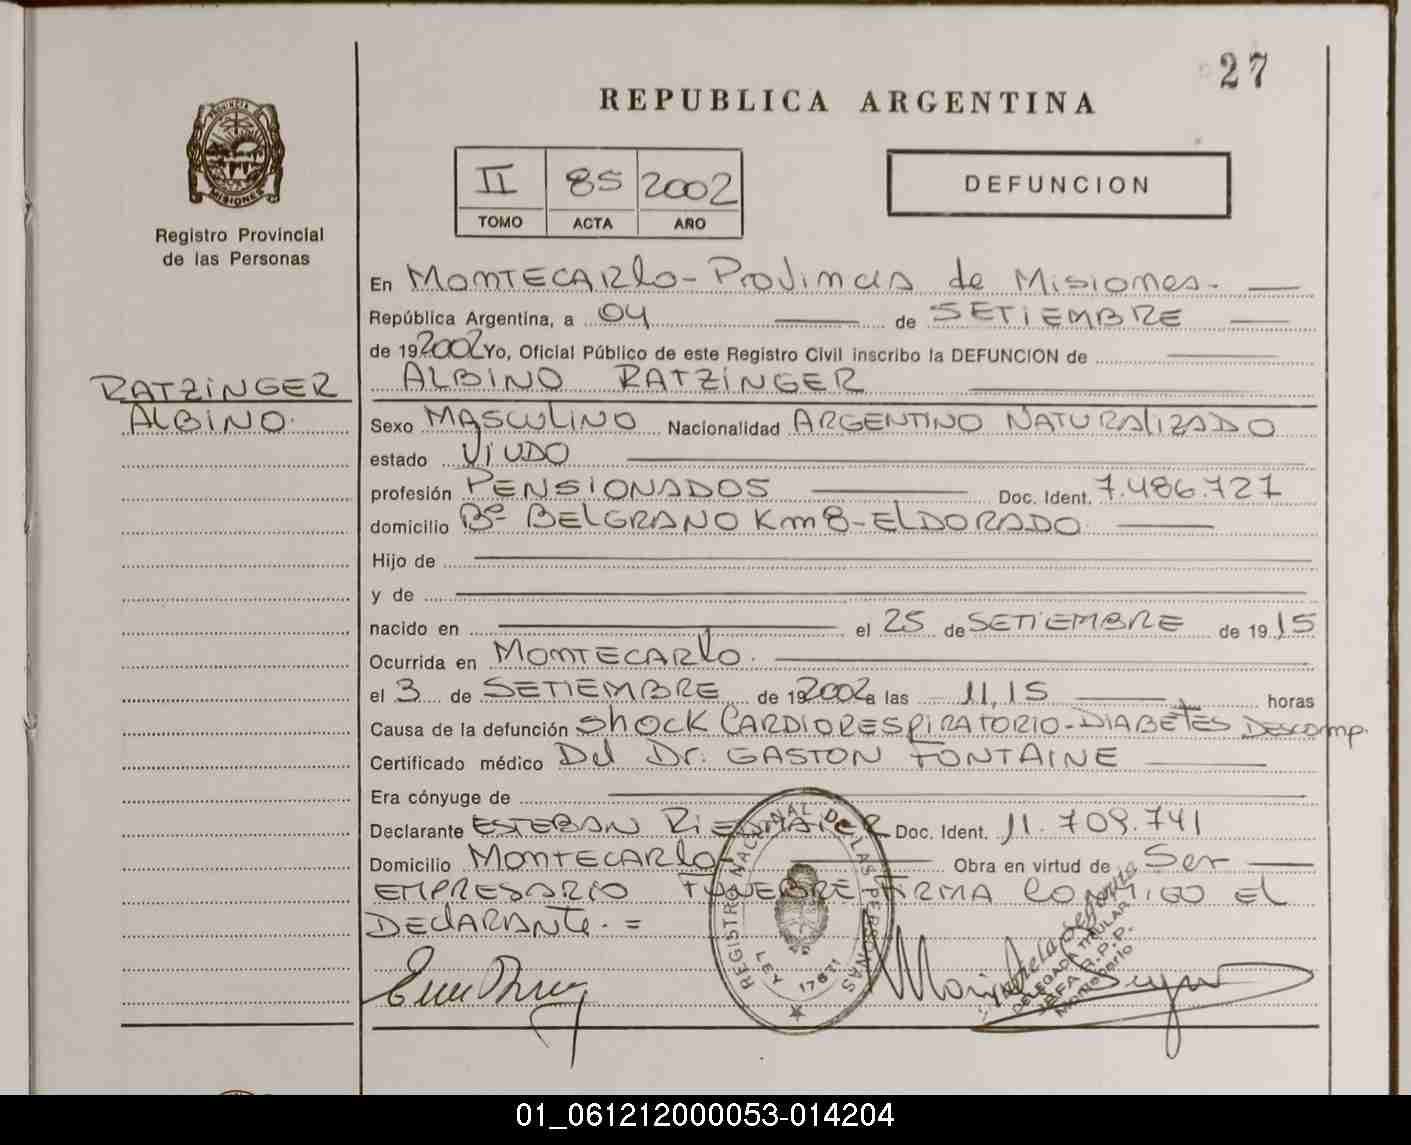 27
REPUBLICA ARGENTINA
PROVINCIA DE MISIONES
Registro Provincial
de las Personas
II 85 2002
TOMO ACTA AÑO
DEFUNCION
En MONTECARLO - Provincia de Misiones.
República Argentina, a 04 de SETIEMBRE
de 192002 Yo, Oficial Público de este Registro Civil inscribo la DEFUNCION de
RATZINGER
ALBINO.
ALBINO RATZINGER
Sexo MASCULINO Nacionalidad ARGENTINO NATURALIZADO
estado VIUDO
profesión PENSIONADOS Doc. Ident. 7.486.727
domicilio Bº BELGRANO Km 8 - ELDORADO
Hijo de
y de
nacido en el 25 de SETIEMBRE de 1915
Ocurrida en MONTECARLO.
el 3 de SETIEMBRE de 192002 a las 11,15 horas
Causa de la defunción SHOCK CARDIORESPIRATORIO - DIABETES Descomp.
Certificado médico Del Dr. GASTON FONTAINE
Era cónyuge de
Declarante ESTEBAN RIEDMAIER Doc. Ident. 11.709.741
Domicilio MONTECARLO Obra en virtud de Ser
EMPRESARIO FUNEBRE FIRMA CONMIGO EL
DECLARANTE. =
REGISTRO NACIONAL DE LAS PERSONAS
LEY 17671
DELEGADA TITULAR
JEFA R.P.P.
Montecarlo
01_061212000053-014204